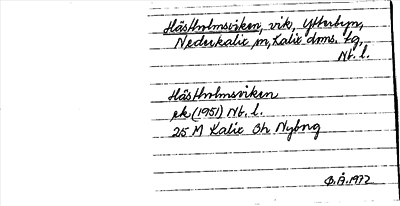 Hästholmsviken, vik, Ytterbyn,
Nederkalix sn, Kalix dms. tg,
Nb. l.
Hästholmsviken
ek (1951) Nb. l.
25 M Kalix Sh Nybng
B.Å. 1972